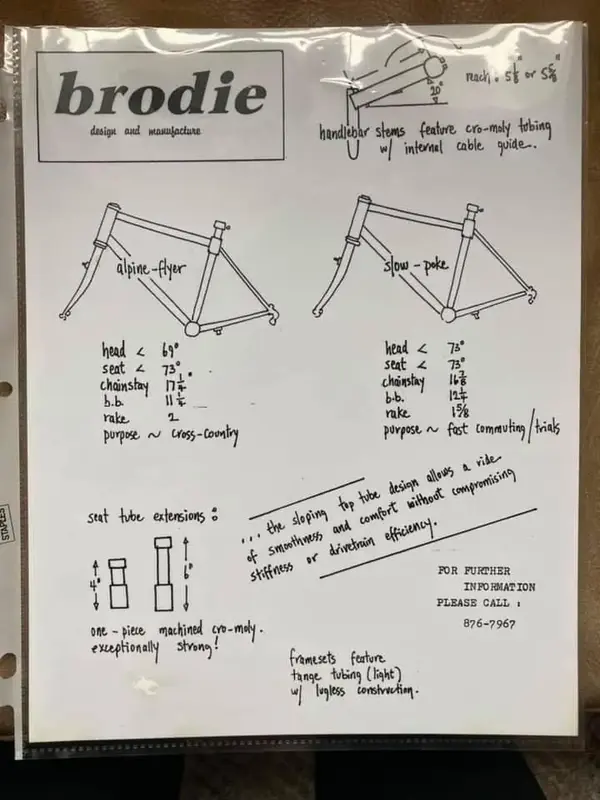 brodie
design and manufacture
20°
reach: 5⅛" or 5⅝"
handlebar stems feature cro-moly tubing
w/ internal cable guide.
alpine-flyer
head < 69°
seat < 73°
chainstay 17¼"
b.b. 11¼
rake 2
purpose ~ cross-country
slow-poke
head < 73°
seat < 73°
chainstay 16⅞
b.b. 12¼
rake 1⅝
purpose ~ fast commuting/trials
... the sloping top tube design allows a ride
of smoothness and comfort without compromising
stiffness or drivetrain efficiency.
seat tube extensions:
4"
6"
one-piece machined cro-moly.
exceptionally strong!
FOR FURTHER
INFORMATION
PLEASE CALL :
876-7967
framesets feature
tange tubing (light)
w/ lugless construction.
STAPLES